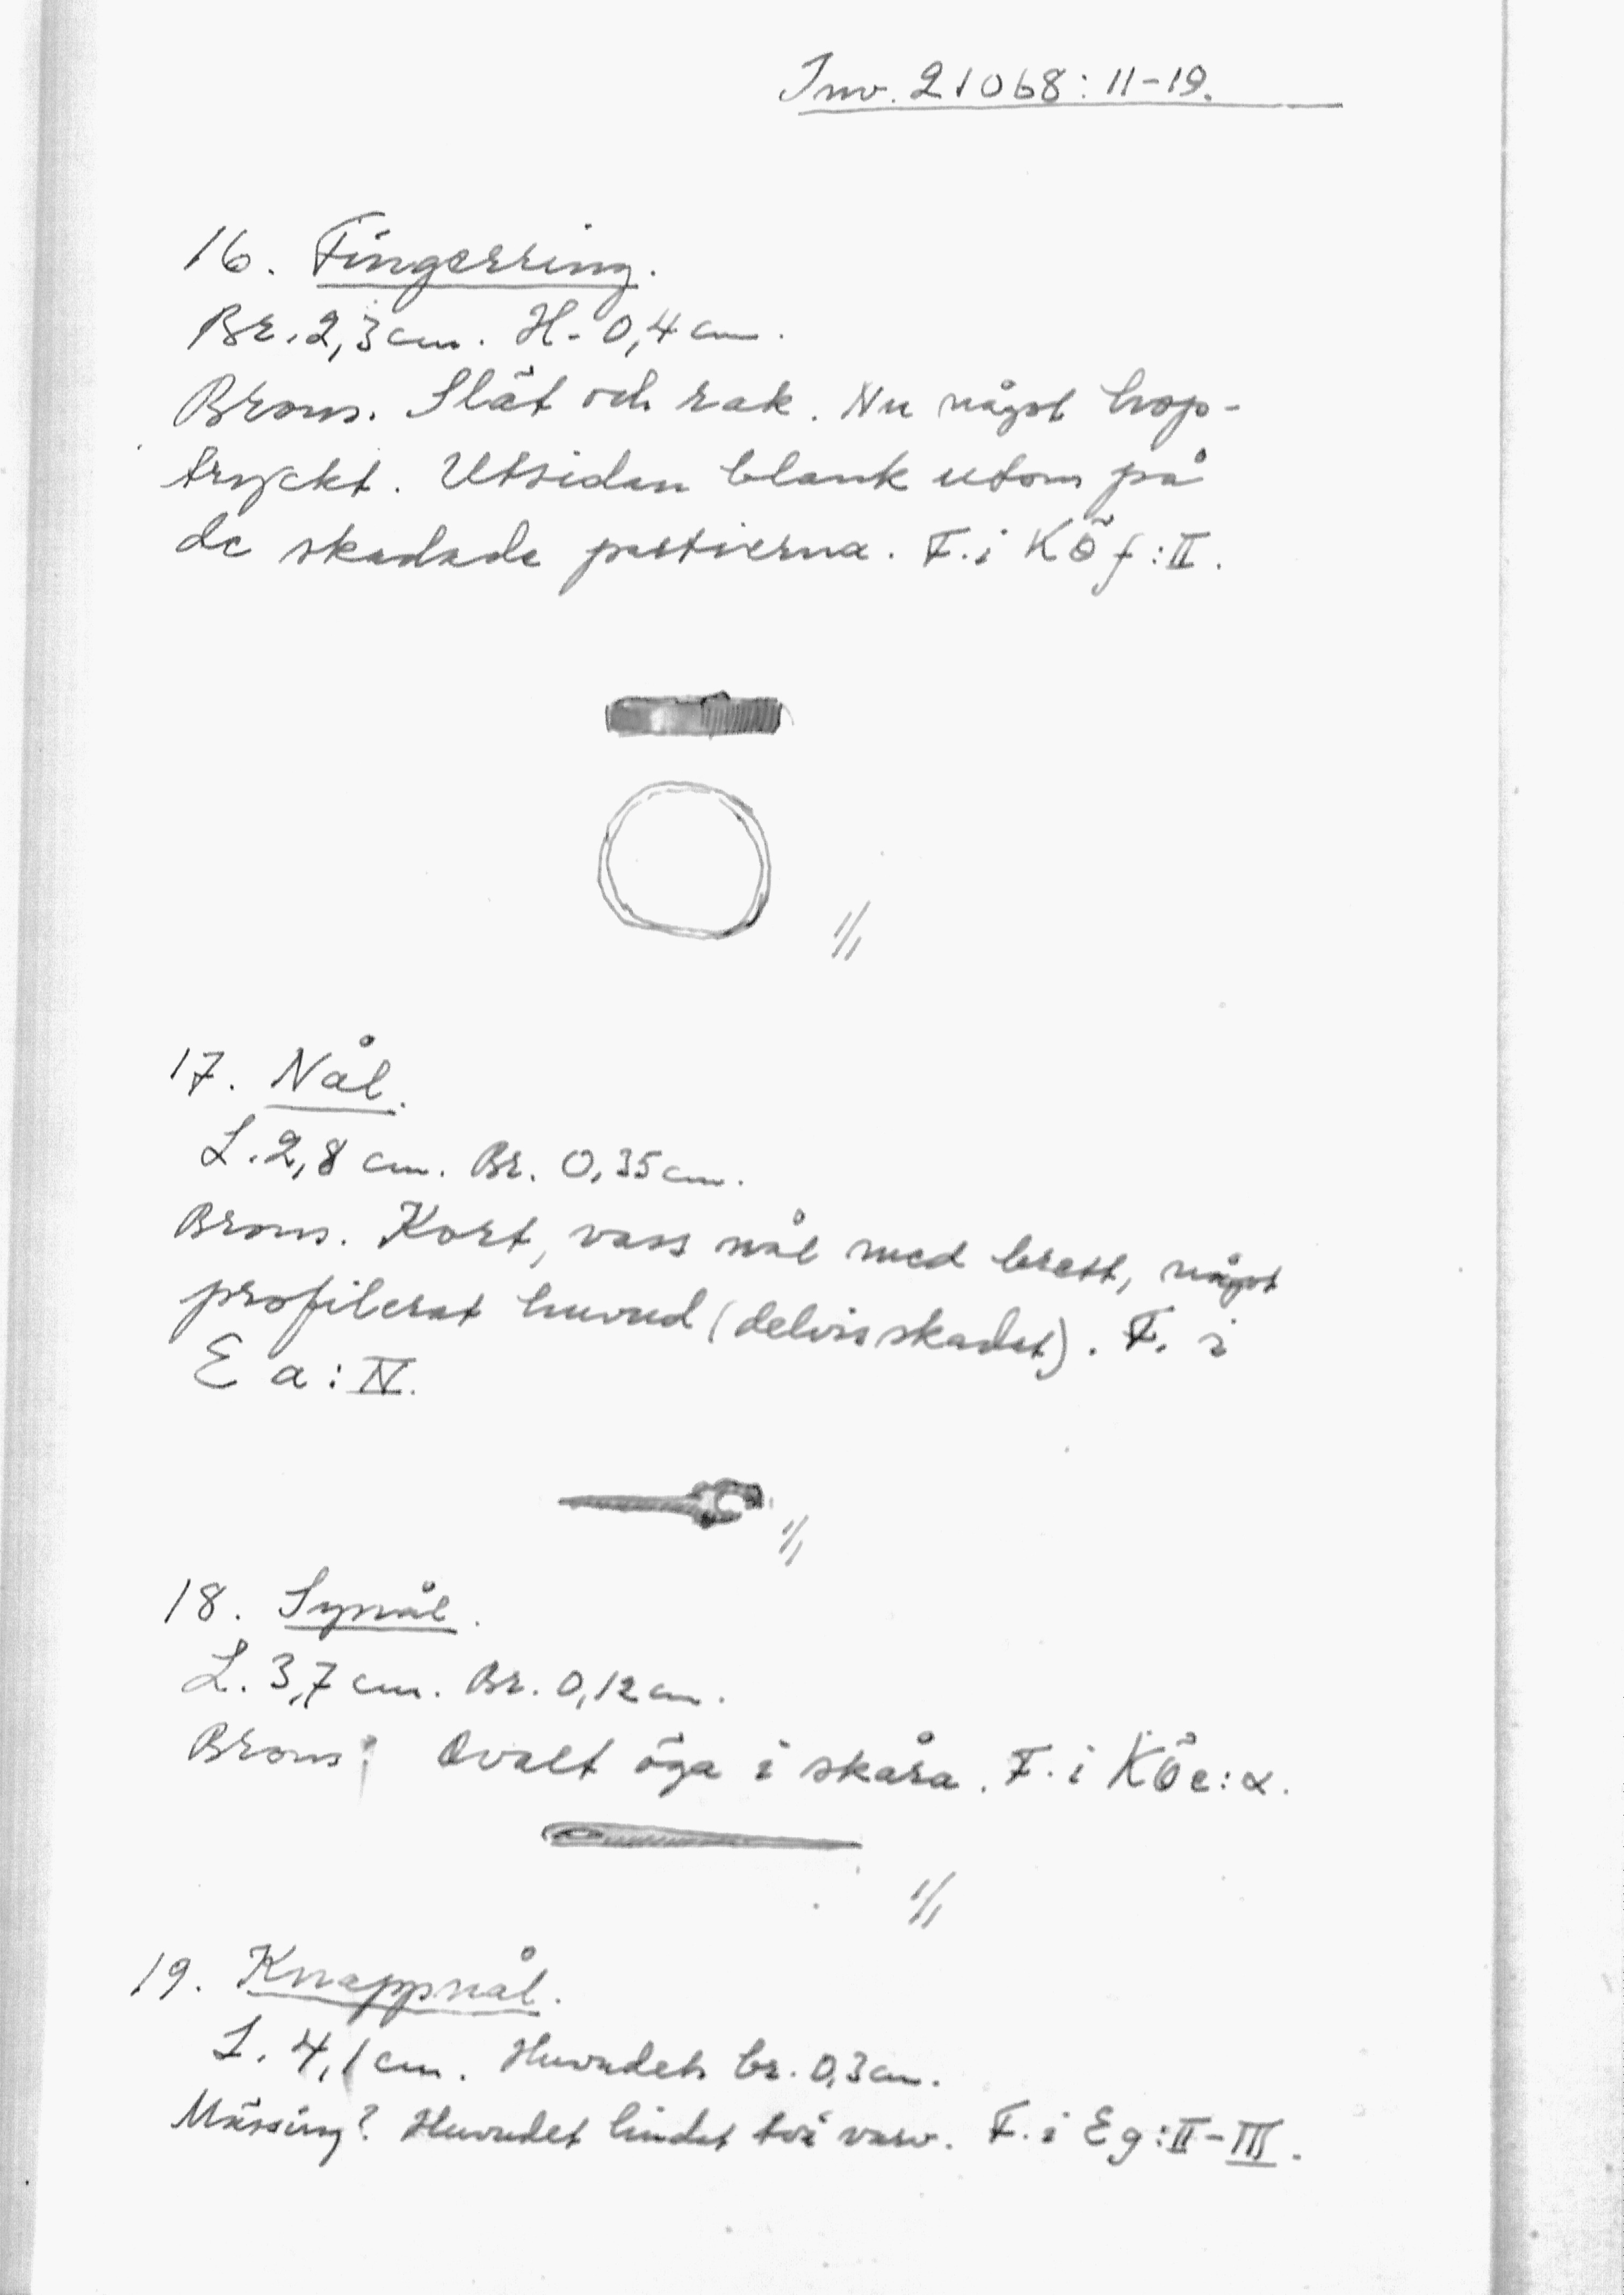 Inv. 21068: 11-19.
16. Fingerring.
Br. 2,3 cm. H. 0,4 cm.
Brons. Slät och rak. Nu något hop-
tryckt. Utsidan blank utom på
de skadade partierna. F. i KÖf:II.
1/1
17. Nål.
L. 2,8 cm. Br. 0,35 cm.
Brons. Kort, vass nål med brett, något
profilerat huvud (delvis skadat). F. i
E a: IV.
1/1
18. Synål.
L. 3,7 cm. Br. 0,12 cm.
Brons? Ovalt öga i skåra. F. i KÖe:α.
1/1
19. Knappnål.
L. 4,1 cm. Huvudets br. 0,3 cm.
Mässing? Huvudet lindat två varv. F. i Eg:II-III.